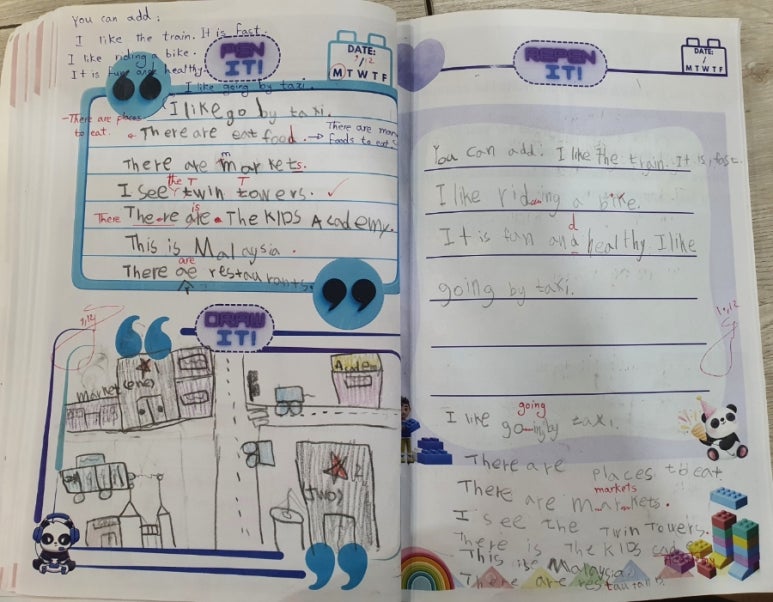 You can add:
I like the train. It is fast.
I like riding a bike.
It is fun and healthy.
I like going by taxi.
PEN IT!
DATE:
1/12
M T W T F
I like go by taxi.
- There are places to eat.
There are eat food. → There are many foods to eat.
There are markets.
I see the twin towers.
There There are is The KIDS Academy.
This is Malaysia.
There are restaurants.
DRAW IT!
1/12
Market
Academ
REPEN IT!
DATE:
/
M T W T F
You can add: I like the train. It is fast.
I like riding a bike.
It is fun and healthy. I like
going by taxi.
going
I like going by taxi.
There are places to eat.
markets
There are markets.
I see the Twin Towers.
There is The KIDS
This is Malaysia
There are restaurants